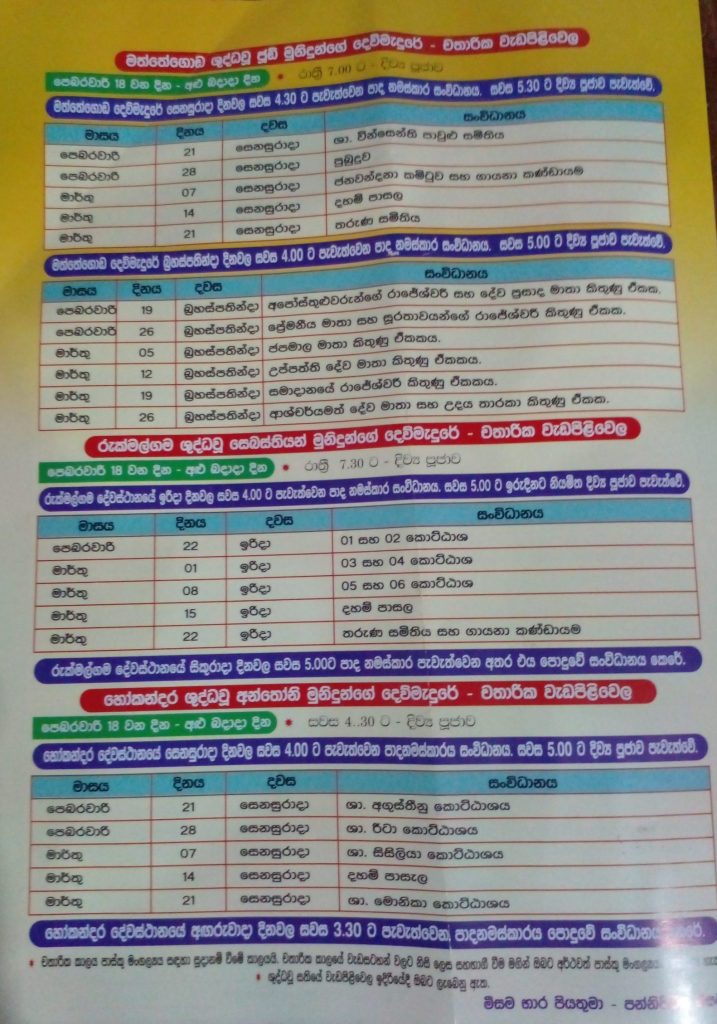 මත්තේගොඩ ශුද්ධවූ ජූඩ් මුනිදුන්ගේ දෙව්මැදුරේ - චතාරික වැඩපිළිවෙල
පෙබරවාරි 18 වන දින - අළු බදාදා දින * රාත්‍රී 7.00 ට - දිව්‍ය පූජාව
මත්තේගොඩ දෙව්මැදුරේ සෙනසුරාදා දිනවල සවස 4.30 ට පැවැත්වෙන පාද නමස්කාර සංවිධානය. සවස 5.30 ට දිව්‍ය පූජාව පැවැත්වේ.
මාසය දිනය දවස සංවිධානය
පෙබරවාරි 21 සෙනසුරාදා ශා. වින්සෙන්ති පාවුළු සමිතිය
පෙබරවාරි 28 සෙනසුරාදා පුබුදුව
මාර්තු 07 සෙනසුරාදා ජනවන්දනා කමිටුව සහ ගායනා කණ්ඩායම
මාර්තු 14 සෙනසුරාදා දහම් පාසල
මාර්තු 21 සෙනසුරාදා තරුණ සමිතිය
මත්තේගොඩ දෙව්මැදුරේ බ්‍රහස්පතින්දා දිනවල සවස 4.00 ට පැවැත්වෙන පාද නමස්කාර සංවිධානය. සවස 5.00 ට දිව්‍ය පූජාව පැවැත්වේ.
මාසය දිනය දවස සංවිධානය
පෙබරවාරි 19 බ්‍රහස්පතින්දා අපෝස්තුළුවරුන්ගේ රාජේශ්වරී සහ දේව ප්‍රසාද මාතා කිතුණු ඒකක.
පෙබරවාරි 26 බ්‍රහස්පතින්දා ප්‍රේමනීය මාතා සහ සුරතාවයන්ගේ රාජේශ්වරී කිතුණු ඒකකය.
මාර්තු 05 බ්‍රහස්පතින්දා ජපමාල මාතා කිතුණු ඒකකය.
මාර්තු 12 බ්‍රහස්පතින්දා උප්පත්ති දේව මාතා කිතුණු ඒකකය.
මාර්තු 19 බ්‍රහස්පතින්දා සමාදානයේ රාජේශ්වරී කිතුණු ඒකකය.
මාර්තු 26 බ්‍රහස්පතින්දා ආශ්චර්යමත් දේව මාතා සහ උදය තාරකා කිතුණු ඒකක.
රුක්මල්ගම ශුද්ධවූ සෙබස්තියන් මුනිදුන්ගේ දෙව්මැදුරේ - චතාරික වැඩපිළිවෙල
පෙබරවාරි 18 වන දින - අළු බදාදා දින * රාත්‍රී 7.30 ට - දිව්‍ය පූජාව
රුක්මල්ගම දේවස්ථානයේ ඉරිදා දිනවල සවස 4.00 ට පැවැත්වෙන පාද නමස්කාර සංවිධානය. සවස 5.00 ට ඉරුදිනට නියමිත දිව්‍ය පූජාව පැවැත්වේ.
මාසය දිනය දවස සංවිධානය
පෙබරවාරි 22 ඉරිදා 01 සහ 02 කොට්ඨාශ
මාර්තු 01 ඉරිදා 03 සහ 04 කොට්ඨාශ
මාර්තු 08 ඉරිදා 05 සහ 06 කොට්ඨාශ
මාර්තු 15 ඉරිදා දහම් පාසල
මාර්තු 22 ඉරිදා තරුණ සමිතිය සහ ගායනා කණ්ඩායම
රුක්මල්ගම දේවස්ථානයේ සිකුරාදා දිනවල සවස 5.00ට පාද නමස්කාර පැවැත්වෙන අතර එය පොදුවේ සංවිධානය කෙරේ.
හෝකන්දර ශුද්ධවූ අන්තෝනි මුනිදුන්ගේ දෙව්මැදුරේ - චතාරික වැඩපිළිවෙල
පෙබරවාරි 18 වන දින - අළු බදාදා දින * සවස 4..30 ට - දිව්‍ය පූජාව
හෝකන්දර දේවස්ථානයේ සෙනසුරාදා දිනවල සවස 4.00 ට පැවැත්වෙන පාදනමස්කාරය සංවිධානය. සවස 5.00 ට දිව්‍ය පූජාව පැවැත්වේ.
මාසය දිනය දවස සංවිධානය
පෙබරවාරි 21 සෙනසුරාදා ශා. අගුස්තීනු කොට්ඨාශය
පෙබරවාරි 28 සෙනසුරාදා ශා. රීටා කොට්ඨාශය
මාර්තු 07 සෙනසුරාදා ශා. සිසිලියා කොට්ඨාශය
මාර්තු 14 සෙනසුරාදා දහම් පාසැල
මාර්තු 21 සෙනසුරාදා ශා. මොනිකා කොට්ඨාශය
හෝකන්දර දේවස්ථානයේ අඟහරුවාදා දිනවල සවස 3.30 ට පැවැත්වෙන පාදනමස්කාරය පොදුවේ සංවිධානය
* චතාරික කාලය පාස්කු මංගල්‍යය සඳහා සූදානම් වීමේ කාලයයි. චතාරික කාලයේ වැඩසටහන් වලට නිසි ලෙස සහභාගී වීම මගින් ඔබට අර්ථවත් පාස්කු
* ශුද්ධවූ සතියේ වැඩපිළිවෙල ඉදිරියේදී ඔබට ලැබෙනු ඇත.
මීසම භාර පියතුමා -